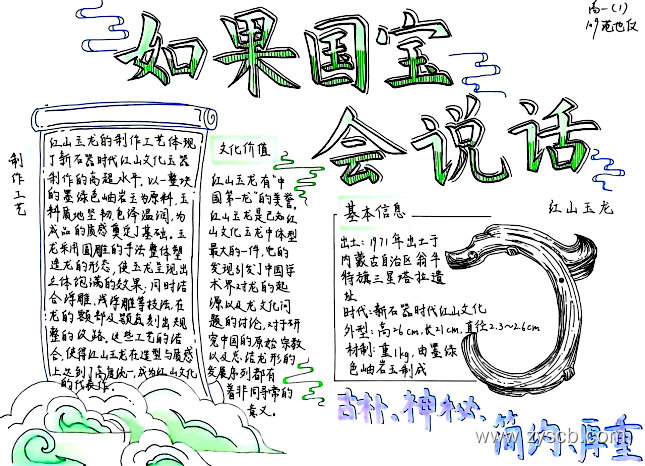 高一(1)
如果国宝
会说话
制作工艺
红山玉龙的制作工艺体现
了新石器时代红山文化玉器
制作的高超水平。以一整块
的墨绿色岫岩玉为原料,玉
料质地坚韧,色泽温润,为
成品的质感奠定了基础。玉
龙采用圆雕的手法整体塑
造龙的形态,使玉龙呈现出
立体饱满的效果;同时结
合浮雕、浅浮雕等技法,在
龙的额部及颚底刻出规
整的纹路。这些工艺的结
合,使得红山玉龙在造型与质感
上达到了高度统一,成为红山文化
的代表作。
文化价值
红山玉龙有“中
国第一龙”的美誉。
红山玉龙是已知红
山文化玉龙中体型
最大的一件,它的
发现引发了中国学
术界对龙的起
源以及龙文化问
题的讨论,对于研
究中国的原始宗教
以及总结龙形的
发展序列都有
着非同寻常的
意义。
基本信息
红山玉龙
出土:1971年出土于
内蒙古自治区翁牛
特旗三星塔拉遗
址
时代:新石器时代红山文化
外型:高26cm,长21cm,直径2.3~2.6cm
材制:重1kg,由墨绿
色岫岩玉制成
古朴、神秘、
简约、厚重
www.zyscb.com